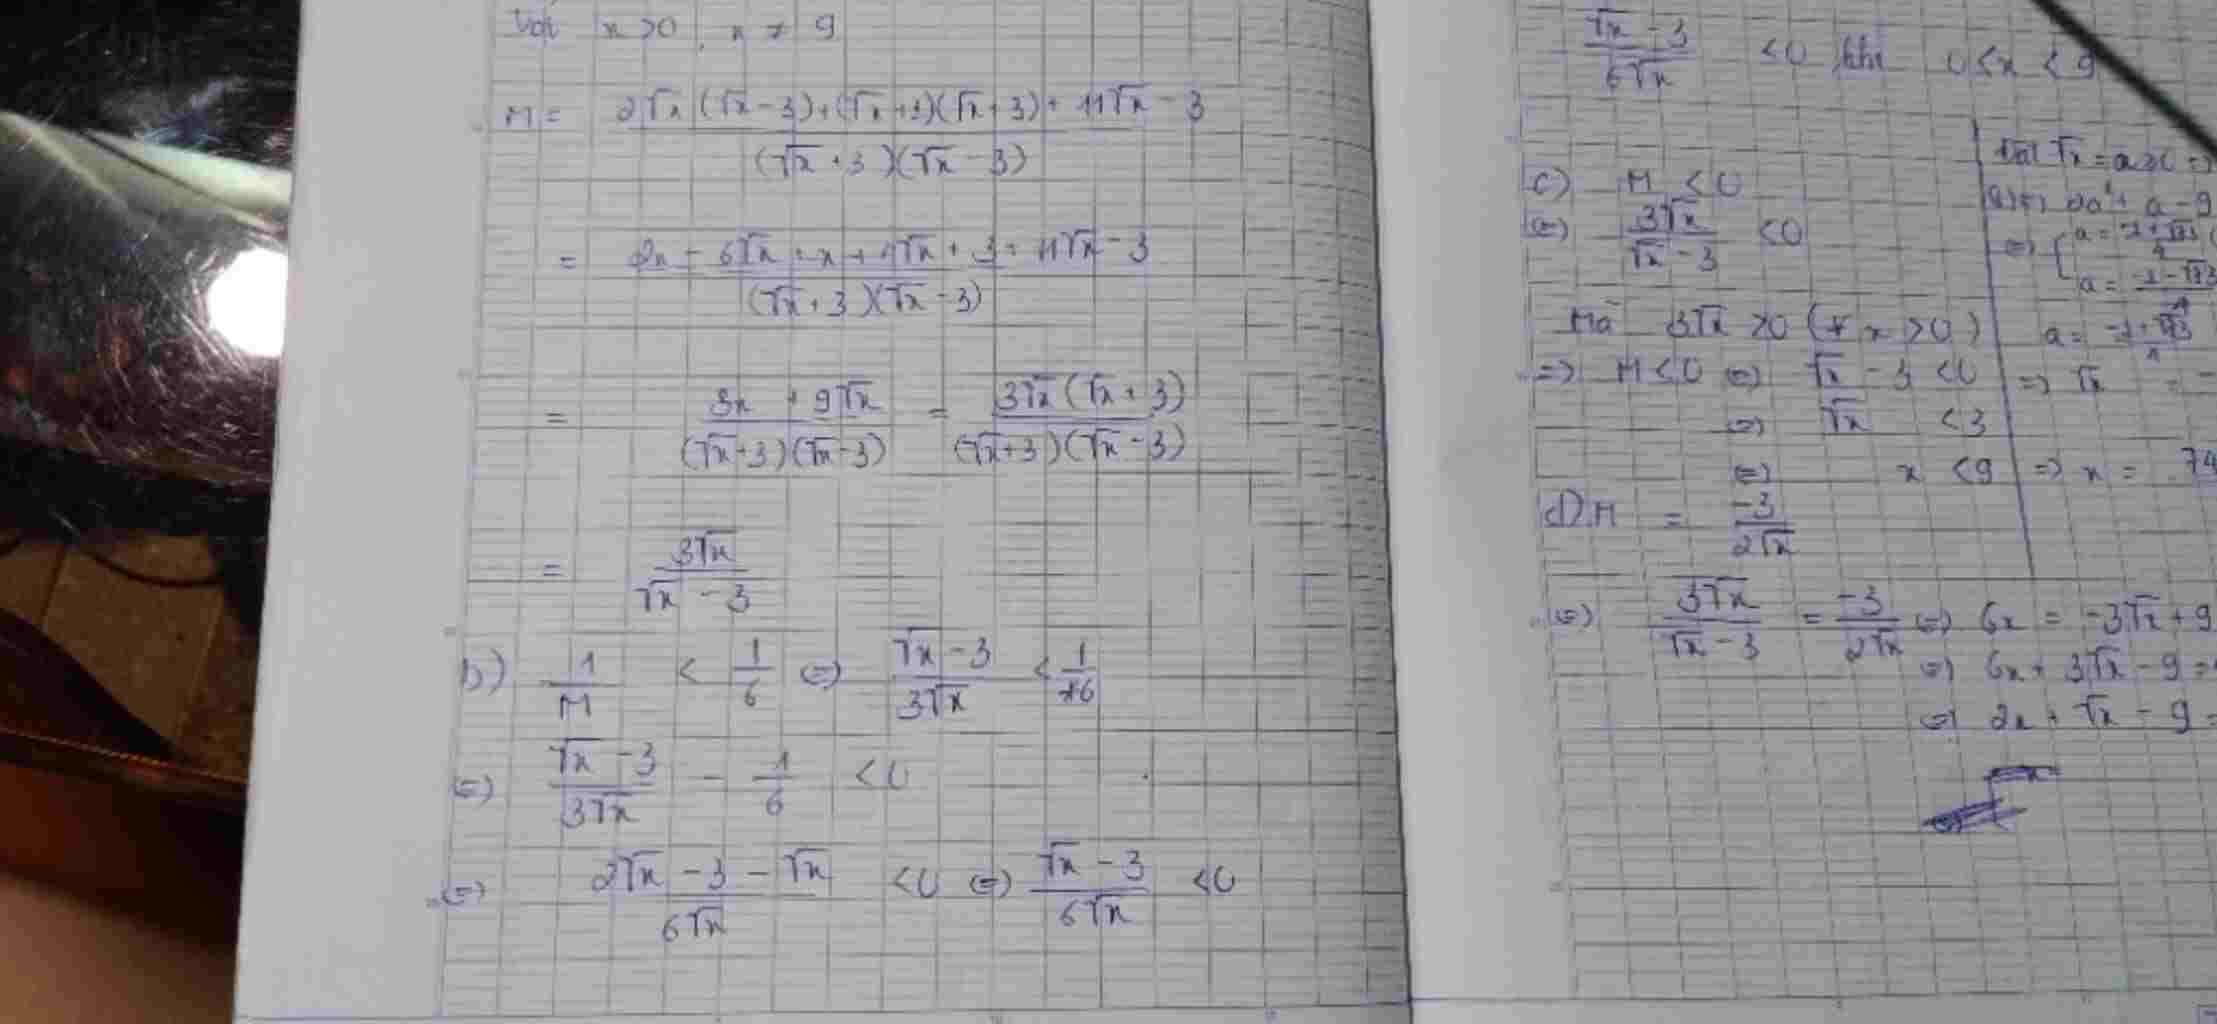 Với x > 0, x ≠ 9
M = (2√x(√x - 3) + (√x + 1)(√x + 3) + 11√x - 3) / ((√x + 3)(√x - 3))
= (2x - 6√x + x + 4√x + 3 + 11√x - 3) / ((√x + 3)(√x - 3))
= (3x + 9√x) / ((√x + 3)(√x - 3)) = (3√x(√x + 3)) / ((√x + 3)(√x - 3))
= 3√x / (√x - 3)
b) 1/M < 1/6 (=) (√x - 3)/(3√x) < 1/6
(=) (√x - 3)/(3√x) - 1/6 < 0
(=) (2√x - 3 - √x)/(6√x) < 0 (=) (√x - 3)/(6√x) < 0
(√x - 3)/(6√x) < 0 khi 0 < x < 9
c) M < 0
(=) 3√x/(√x - 3) < 0
Mà 3√x > 0 (∀ x > 0)
=> M < 0 (=) √x - 3 < 0
(=) √x < 3
(=) x < 9
d) M = -3/(2√x)
(=) 3√x/(√x - 3) = -3/(2√x) (=) 6x = -3√x + 9
(=) 6x + 3√x - 9 =
(=) 2x + √x - 9 =
Đặt √x = a
2a² + a - 9
(=) [ a = (-1 + √73)/4
a = (-1 - √73)/4
a = (-1 + √73)/4
=> √x = -
=> x = 74